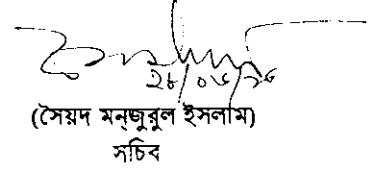 ২৮/০৬/১৬
(সৈয়দ মন্জুরুল ইসলাম)
সচিব